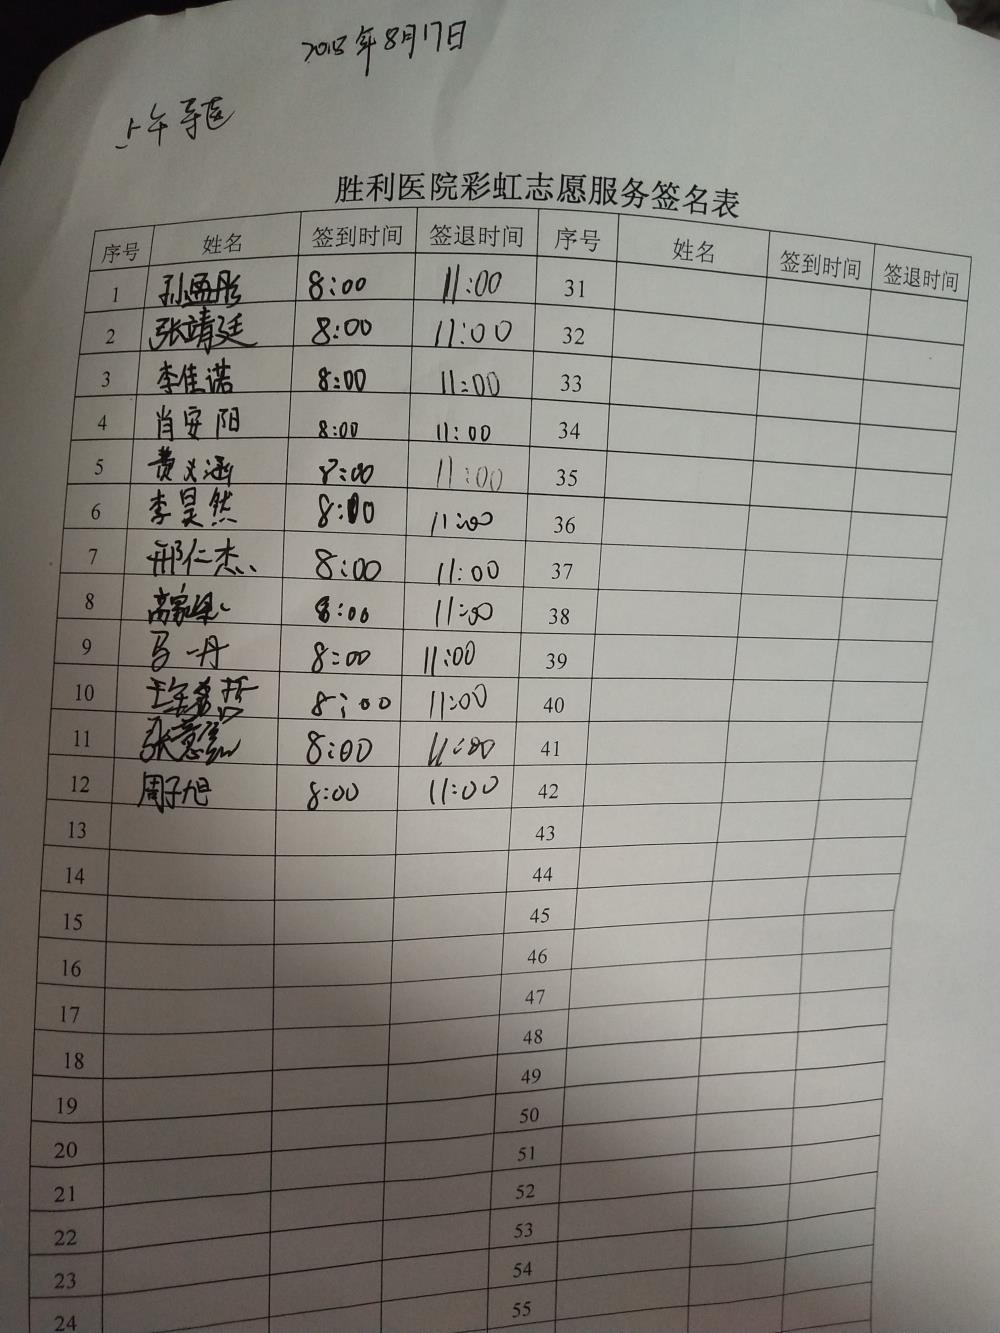 2018年8月17日
上午导医
胜利医院彩虹志愿服务签名表
序号 姓名 签到时间 签退时间 序号 姓名 签到时间 签退时间
1 孙孟彤 8:00 11:00 31
2 张靖廷 8:00 11:00 32
3 李佳诺 8:00 11:00 33
4 肖安阳 8:00 11:00 34
5 费义涵 8:00 11:00 35
6 李昊然 8:00 11:00 36
7 邢仁杰 8:00 11:00 37
8 高家 8:00 11:00 38
9 马一丹 8:00 11:00 39
10 8:00 11:00 40
11 张 8:00 11:00 41
12 周子旭 8:00 11:00 42
13 43
14 44
15 45
16 46
17 47
18 48
19 49
20 50
21 51
22 52
23 53
24 54
55